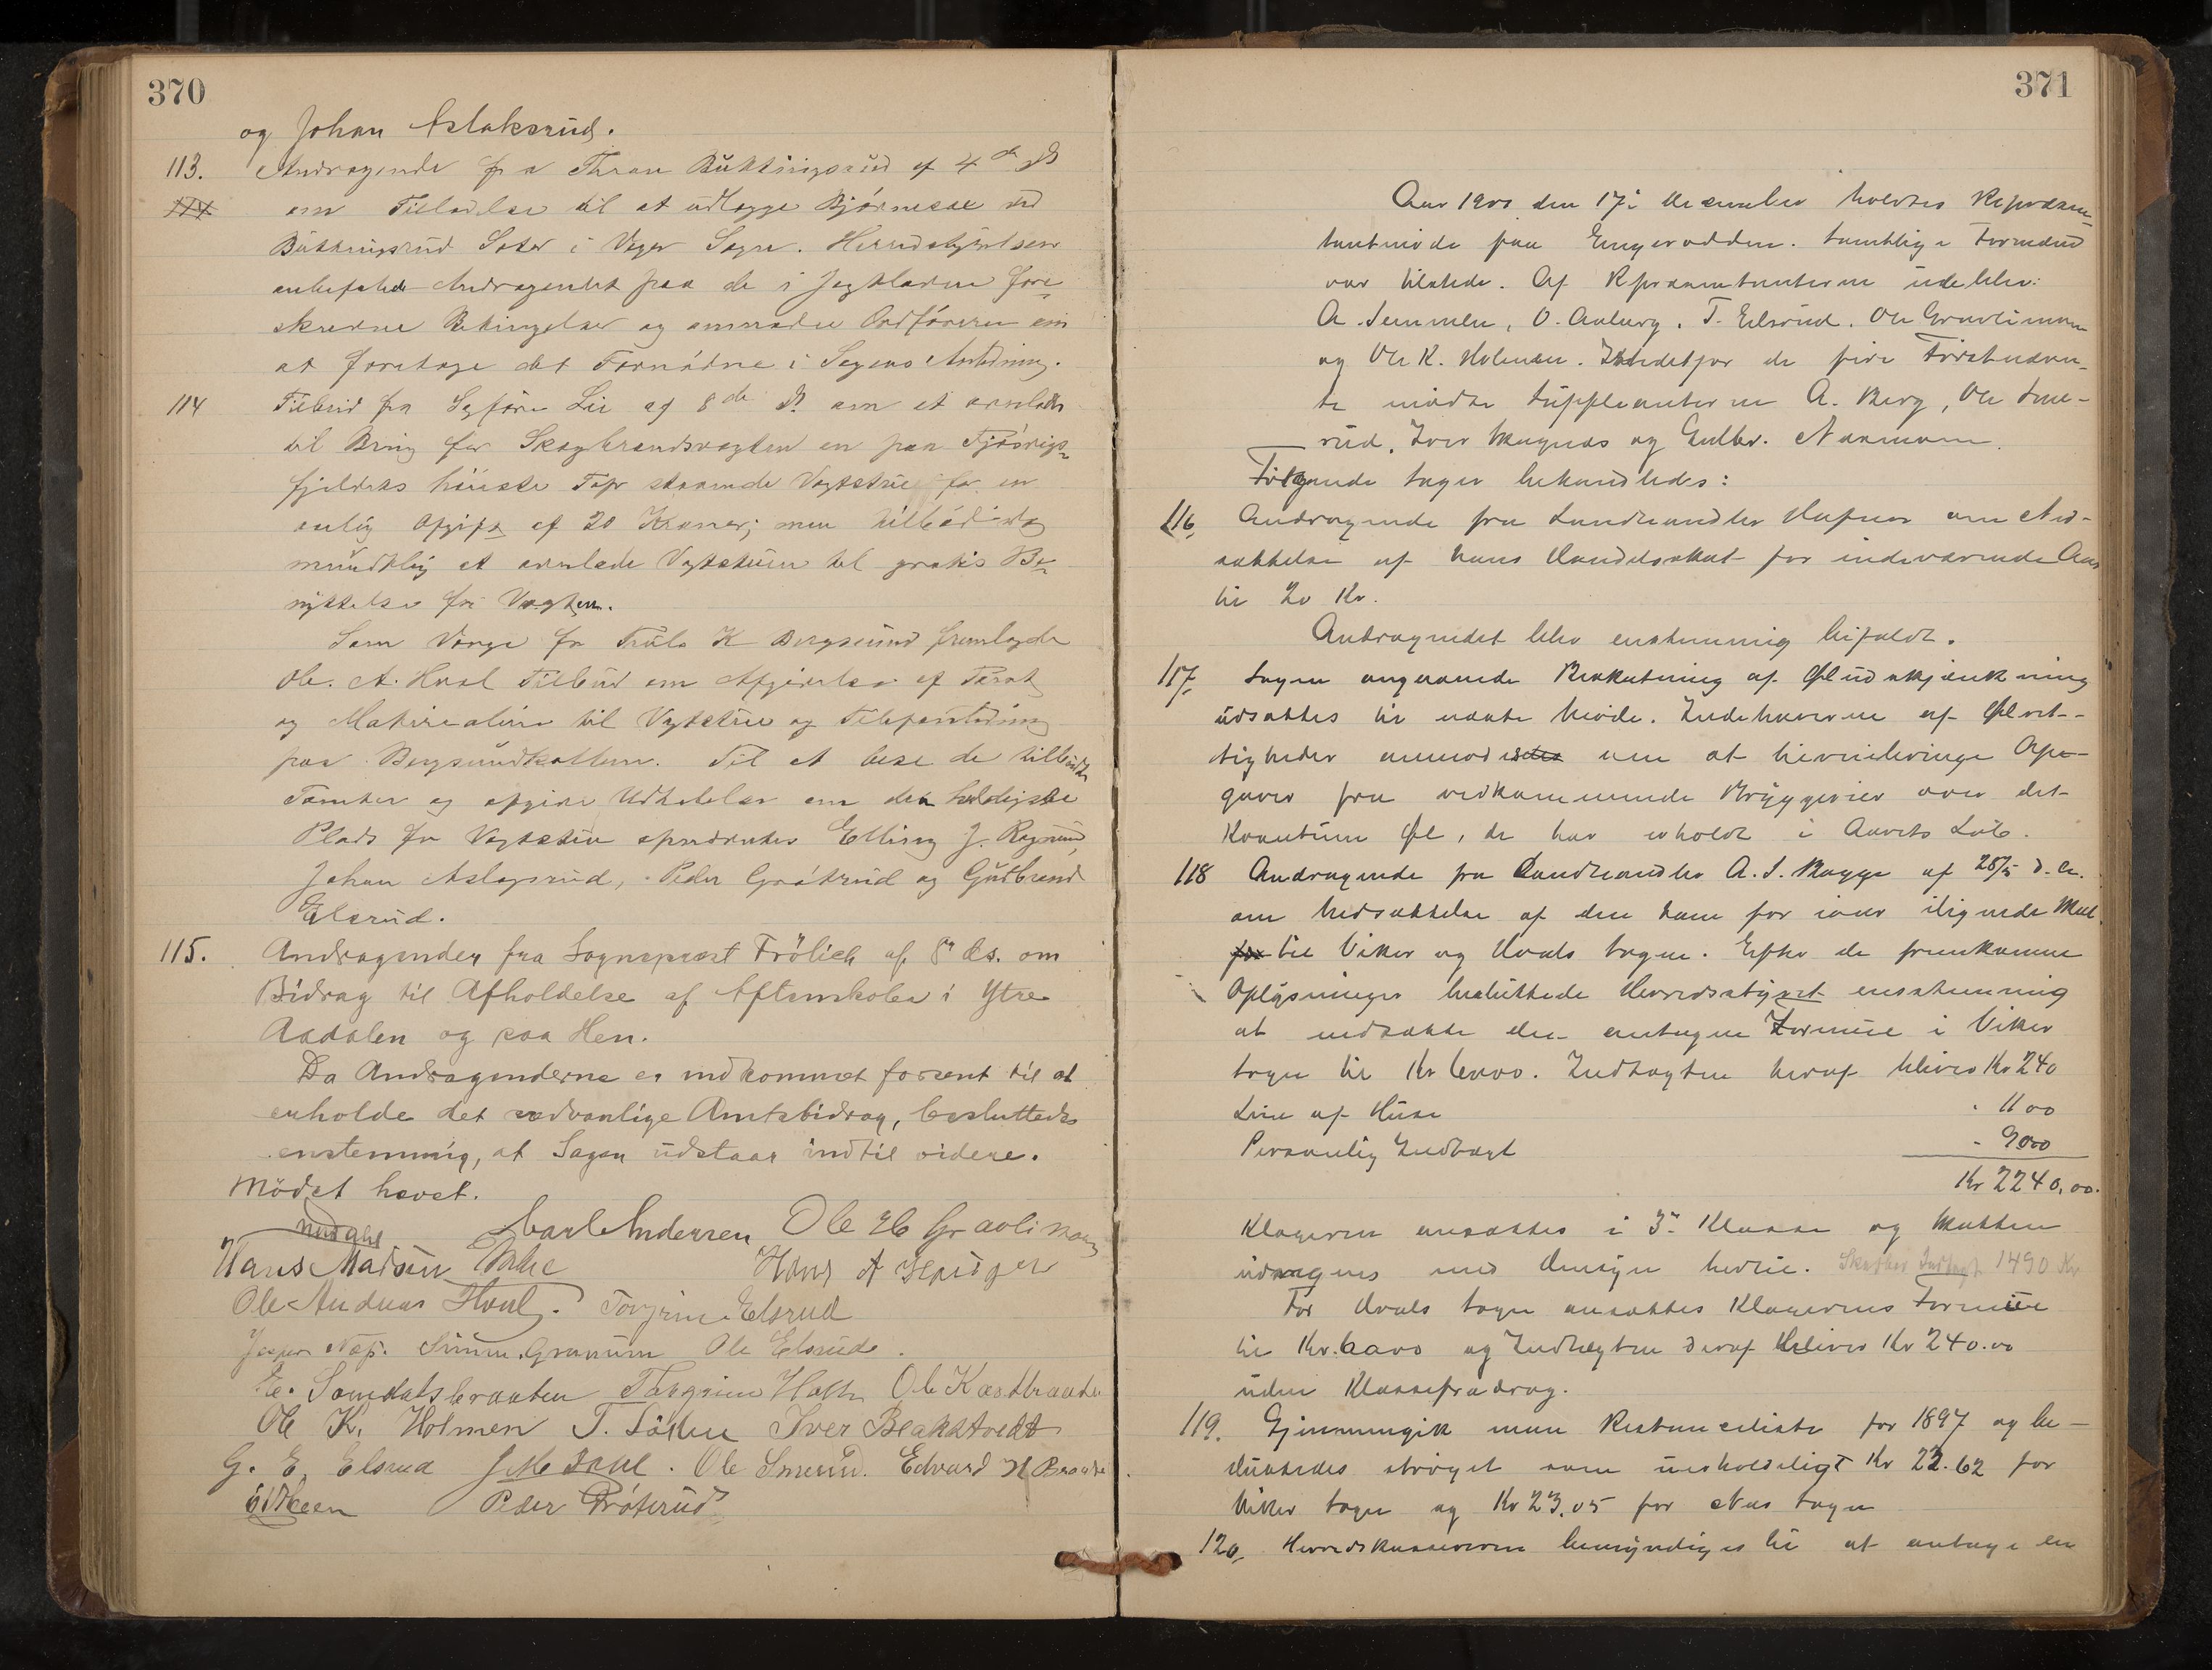 370
og Johan Aslaksrud.
113. Andragende fra Thran Bukkingsrud af 4de ds
114 om Tilladelse til at udlægge Bjørnesax ved
Bukkingsrud Sæter i Veger Sogn. Herredsstyrelsen
anbefalede Andragendet paa de i Jagtloven fore-
skrevne Betingelser og anmoder Ordføreren om
at foretage det Fornødne i Sagens Anledning.
114 Tilbud fra Sagfører Lie af 8de ds. om at overlade
til Brug for Skogbrandsvagten en paa
fjeldets høieste Top staaende Vagtstue for en
aarlig Afgift af 20 Kroner; men tilbød idag
mundtlig at overlade Vagtstuen til gratis Be-
nyttelse for Vagten.
Som Værge for Truls K Bergsund fremlagde
Ole A. Hval Tilbud om Afgivelse af Tomt
og Materialier til Vagtstue og Telefonledning
paa Bergsundkollen. Til at bese de tilbudte
Tomter og afgive Udtalelse om den heldigste
Plads for Vagtstue opnævntes Elling J. Rogniud,
Johan Aslagsrud, Peder Grøterud og Gudbrand
Elsrud.
115. Andragender fra Sogneprest Frölich af 8de ds. om
Bidrag til Afholdelse af Aftenskoler i Ytre
Aadalen og paa Hen.
Da Andragenderne er indkommet forsent til at
erholde det sædvanlige Amtsbidrag, besluttedes
enstemmig, at Sagen udstaar indtil videre.
Mödet hævet.
Carl Andersen Ole Eb Gravlimoen
Hans Madsen Hans A
Ole Andreas Hval. Torgrim Elsrud
Jesper Næs. Simen Granum Ole Elsrud.
E. Somdalsbraaten Torgrim Holte Ole Kastbraaten
Ole K. Holmen T. Sørlie Iver Blakstvedt
G. E. Elsrud J M Dahl. Ole Smerud. Edvard H Braaten
Peder Grøterud
371
Aar 1900 den 17de december holdtes Repræsen-
tantmøde paa Engerodden. Samtlige Formænd
var tilstede. Af Repræsentanterne udeblev:
A. Semmen, O. Aaberg, T. Elsrud, Ole Gravlimoen
og Ole K. Holmen. Istedetfor de fire Førstnævn-
te mødte Suppleanterne A. Berg, Ole Sme-
rud, Iver Skagnæs og Gulbr. Næsmoen
Følgende sager behandledes:
116, Andragende fra Landhandler Hafnor om Ned-
sættelse af hans Handelsskat for indeværende Aar
til 20 Kr.
Andragendet blev enstemmig bifaldt.
117, Sagen angaaende Beskatning af Øludskjænkning
udsattes til næste Møde. Indehaverne af Ølret-
tigheder anmodes om at tilveiebringe Op-
gaver fra vedkommende Bryggerier over det
Kvantum Øl, de har erholdt i Aarets Løb.
118 Andragende fra Landhandler A. S. Bagge af 28/5 d. A.
om Nedsættelse af den ham for iaar ilignede Skat
for til Viker og Hvals sogne. Efter de fremkomne
Oplysninger besluttede Herredsstyret enstemmig
at nedsætte den antagne Formue i Viker
sogn til Kr 6000. Indtægten heraf bliver Kr 240
Leie af Huse " 1100
Personlig Indtægt " 900
Kr 2240,00.
Klageren ansættes i 3de Klasse og Skatten
udregnes med Hensyn hertil. Skatbar Indtægt 1490 Kr
For Hvals Sogn ansattes Klagerens Formue
til Kr. 6000 og Indtægten deraf bliver Kr 240.00
uden Klassefradrag.
119. Gjennemgik man Restanceliste for 1897 og be-
sluttedes strøget som uerholdeligt Kr 22.62 for
Viker sogn og Kr 23.05 for Næs sogn
120, Herredskassereren bemyndiges til at antage en